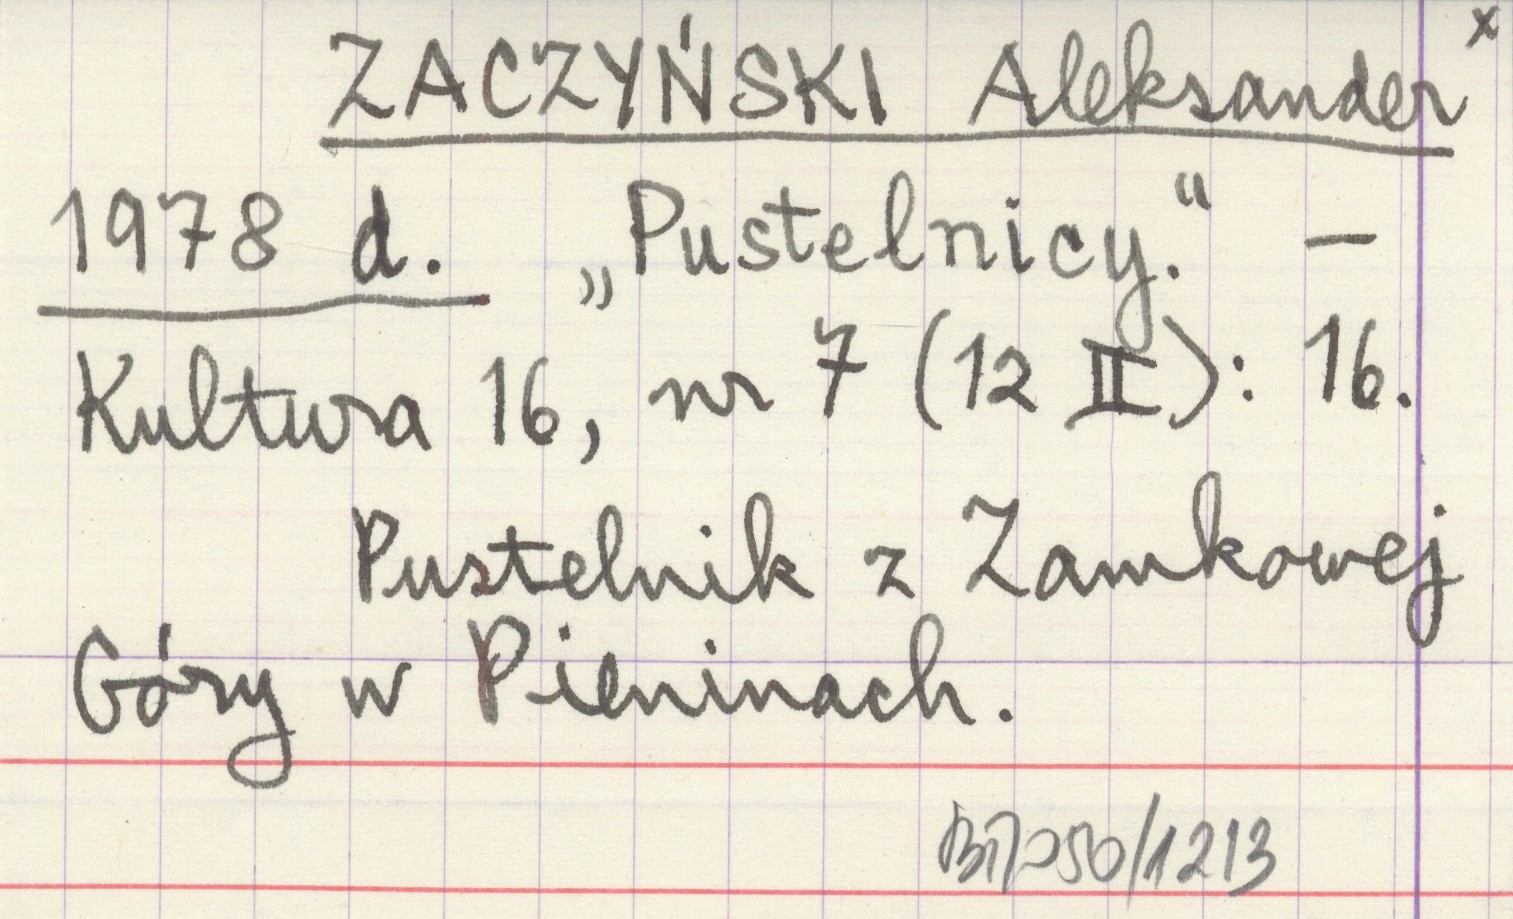 ZACZYŃSKI Aleksander x
1978 d. „Pustelnicy.“ –
Kultura 16, nr 7 (12 II): 16.
Pustelnik z Zamkowej
Góry w Pieninach.
/1213